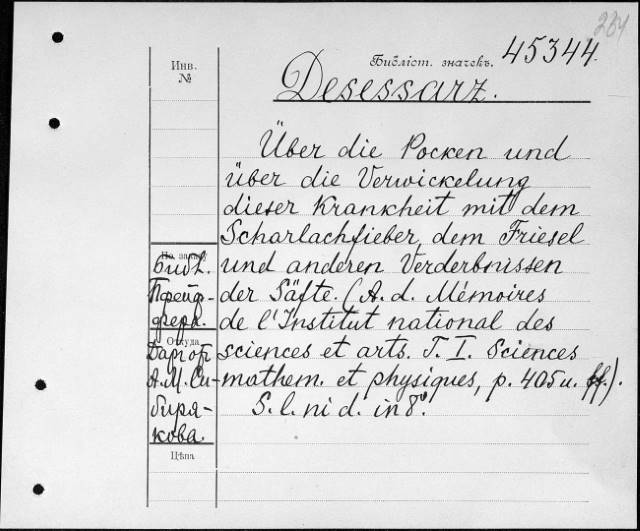 284
Инв.
№
Библіот. значекъ. 45344.
Desessarz.
Über die Pocken und
über die Verwickelung
dieser Krankheit mit dem
Scharlachfieber, dem Friesel
und anderen Verderbnissen
der Säfte. (A. d. Mémoires
de l'Institut national des
sciences et arts. T. I. Sciences
mathem. et physiques, p. 405 u. ff.).
S. l. ni d. in 8º.
Библ.
Пфейф-
фера.
Откуда
Даръ отъ
А. М. Си-
биря-
кова.
Цѣна